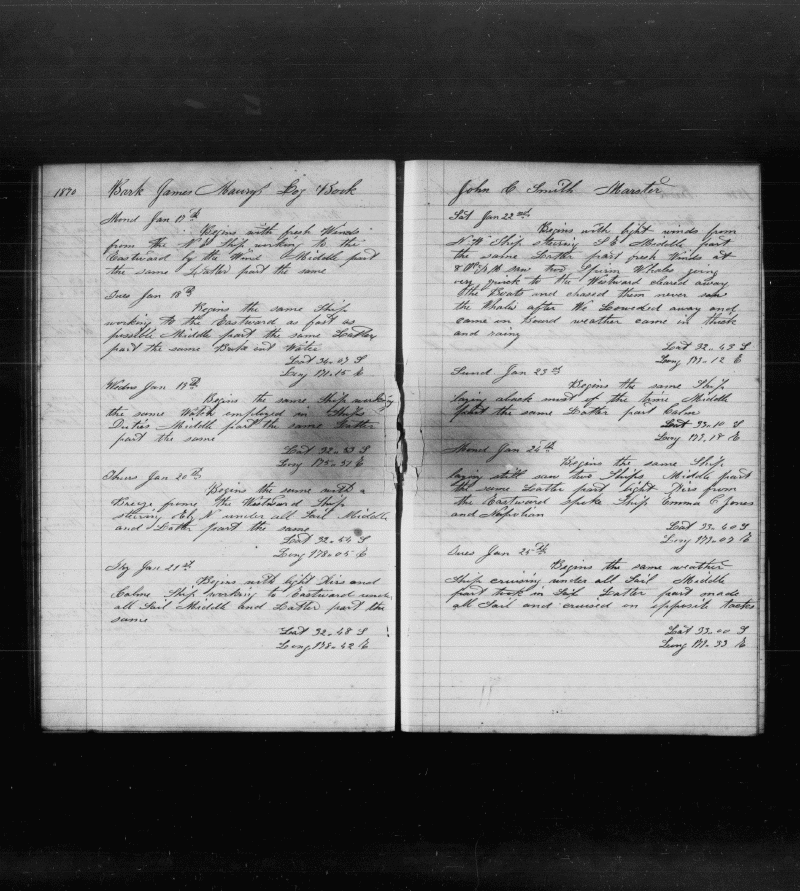 1870
Bark James Maury's Log Book
Mond Jan 17th
Begins with fresh Winds
from the N'd Ship working to the
Eastward by the Wind Middle part
the same Latter part the same
Tues Jan 18th
Begins the same Ship
working to the Eastward as fast as
possible Middle part the same Latter
part the same Broke out Water
Lat 34-07 S
Long 171-15 E
Wednes Jan 19th
Begins the same Ship working
the same Watch employed in Ships
Duties Middle part the same Latter
part the same
Lat 32-53 S
Long 175-31 E
Thurs Jan 20th
Begins the same with a
Breeze from the Westward Ship
steering by N under all Sail Middle
and Latter part the same
Lat 32-44 S
Long 178-05 E
Fry Jan 21st
Begins with light Airs and
Calms Ship working to Eastward under
all Sail Middle and Latter part the
same
Lat 32-48 S
Long 178-42 E
John C Smith Marster
Sat Jan 22nd
Begins with light winds from
N.W. Ship steering S E Middle part
the same Latter part fresh Winds at
saw two Sperm Whales going
very quick to the Westward cleared away
the Boats and chased them never saw
the Whales after We Lowered away and
came on Board weather came in thick
and rainy
Lat 32-43 S
Long 179-12 E
Sund Jan 23rd
Begins the same Ship
laying aback most of the time Middle
part the same Latter part Calm
Lat 33-10 S
Long 179-18 E
Mond Jan 24th
Begins the same Ship
laying still saw two Ships Middle part
the same Latter part light Airs from
the Eastward spoke Ship Emma C Jones
and Napolian
Lat 33-40 S
Long 179-07 E
Tues Jan 25th
Begins the same weather
Ship cruising under all Sail Middle
part took in Sail Latter part made
all Sail and cruised on opposite tacks
Lat 33-00 S
Long 179-33 E